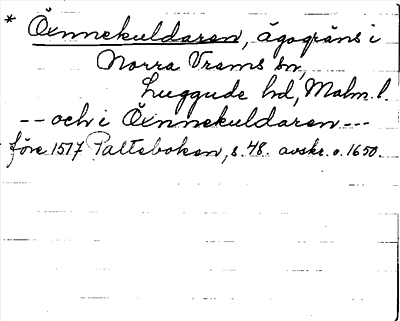 * Öinnekuldaren, ägogräns i
Norra Vrams sn,
Luggude hd, Malm. l.
-- och i Öinnekuldaren ---
före 1517 Palteboken, s. 48. avskr. o. 1650.